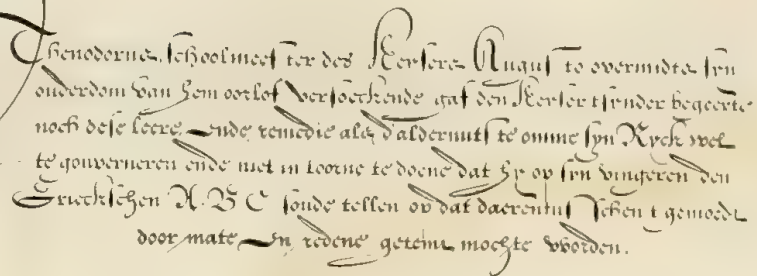 Thenodorus. schoolmeester des Keysers Augusto overmidts syn
ouderdom van hem oorlof versoeckende gaf den Keyser tsynder begeerte
noch dese leere, ende remedie als d'aldernutste omme syn Ryck wel
te gouverneren ende niet in toorne te doene dat hy op syn vingeren den
Grieckschen A. B C soude tellen op dat daerentusschen t gemoedt
door mate en redene getemt mochte worden.